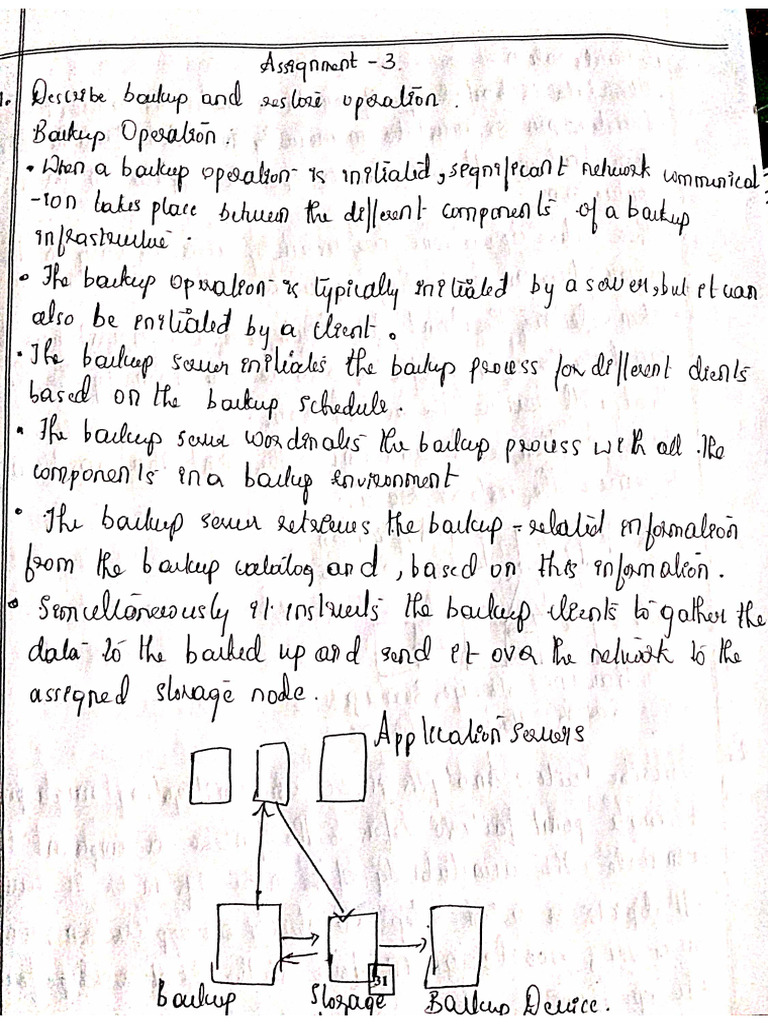 Assignment - 3.
1. Describe backup and restore operation.
Backup Operation :
• When a backup operation is initiated, significant network communicat
-ion takes place between the different components of a backup
infrastructure.
• The backup operation is typically initiated by a server, but it can
also be initiated by a client.
• The backup server initiates the backup process for different clients
based on the backup schedule.
• The backup server coordinates the backup process with all the
components in a backup environment
• The backup server retrieves the backup - related information
from the backup catalog and, based on this information.
• Simultaneously it instructs the backup clients to gather the
data to the backed up and send it over the network to the
assigned storage node.
Application Servers
31
Backup Storage Backup Device.